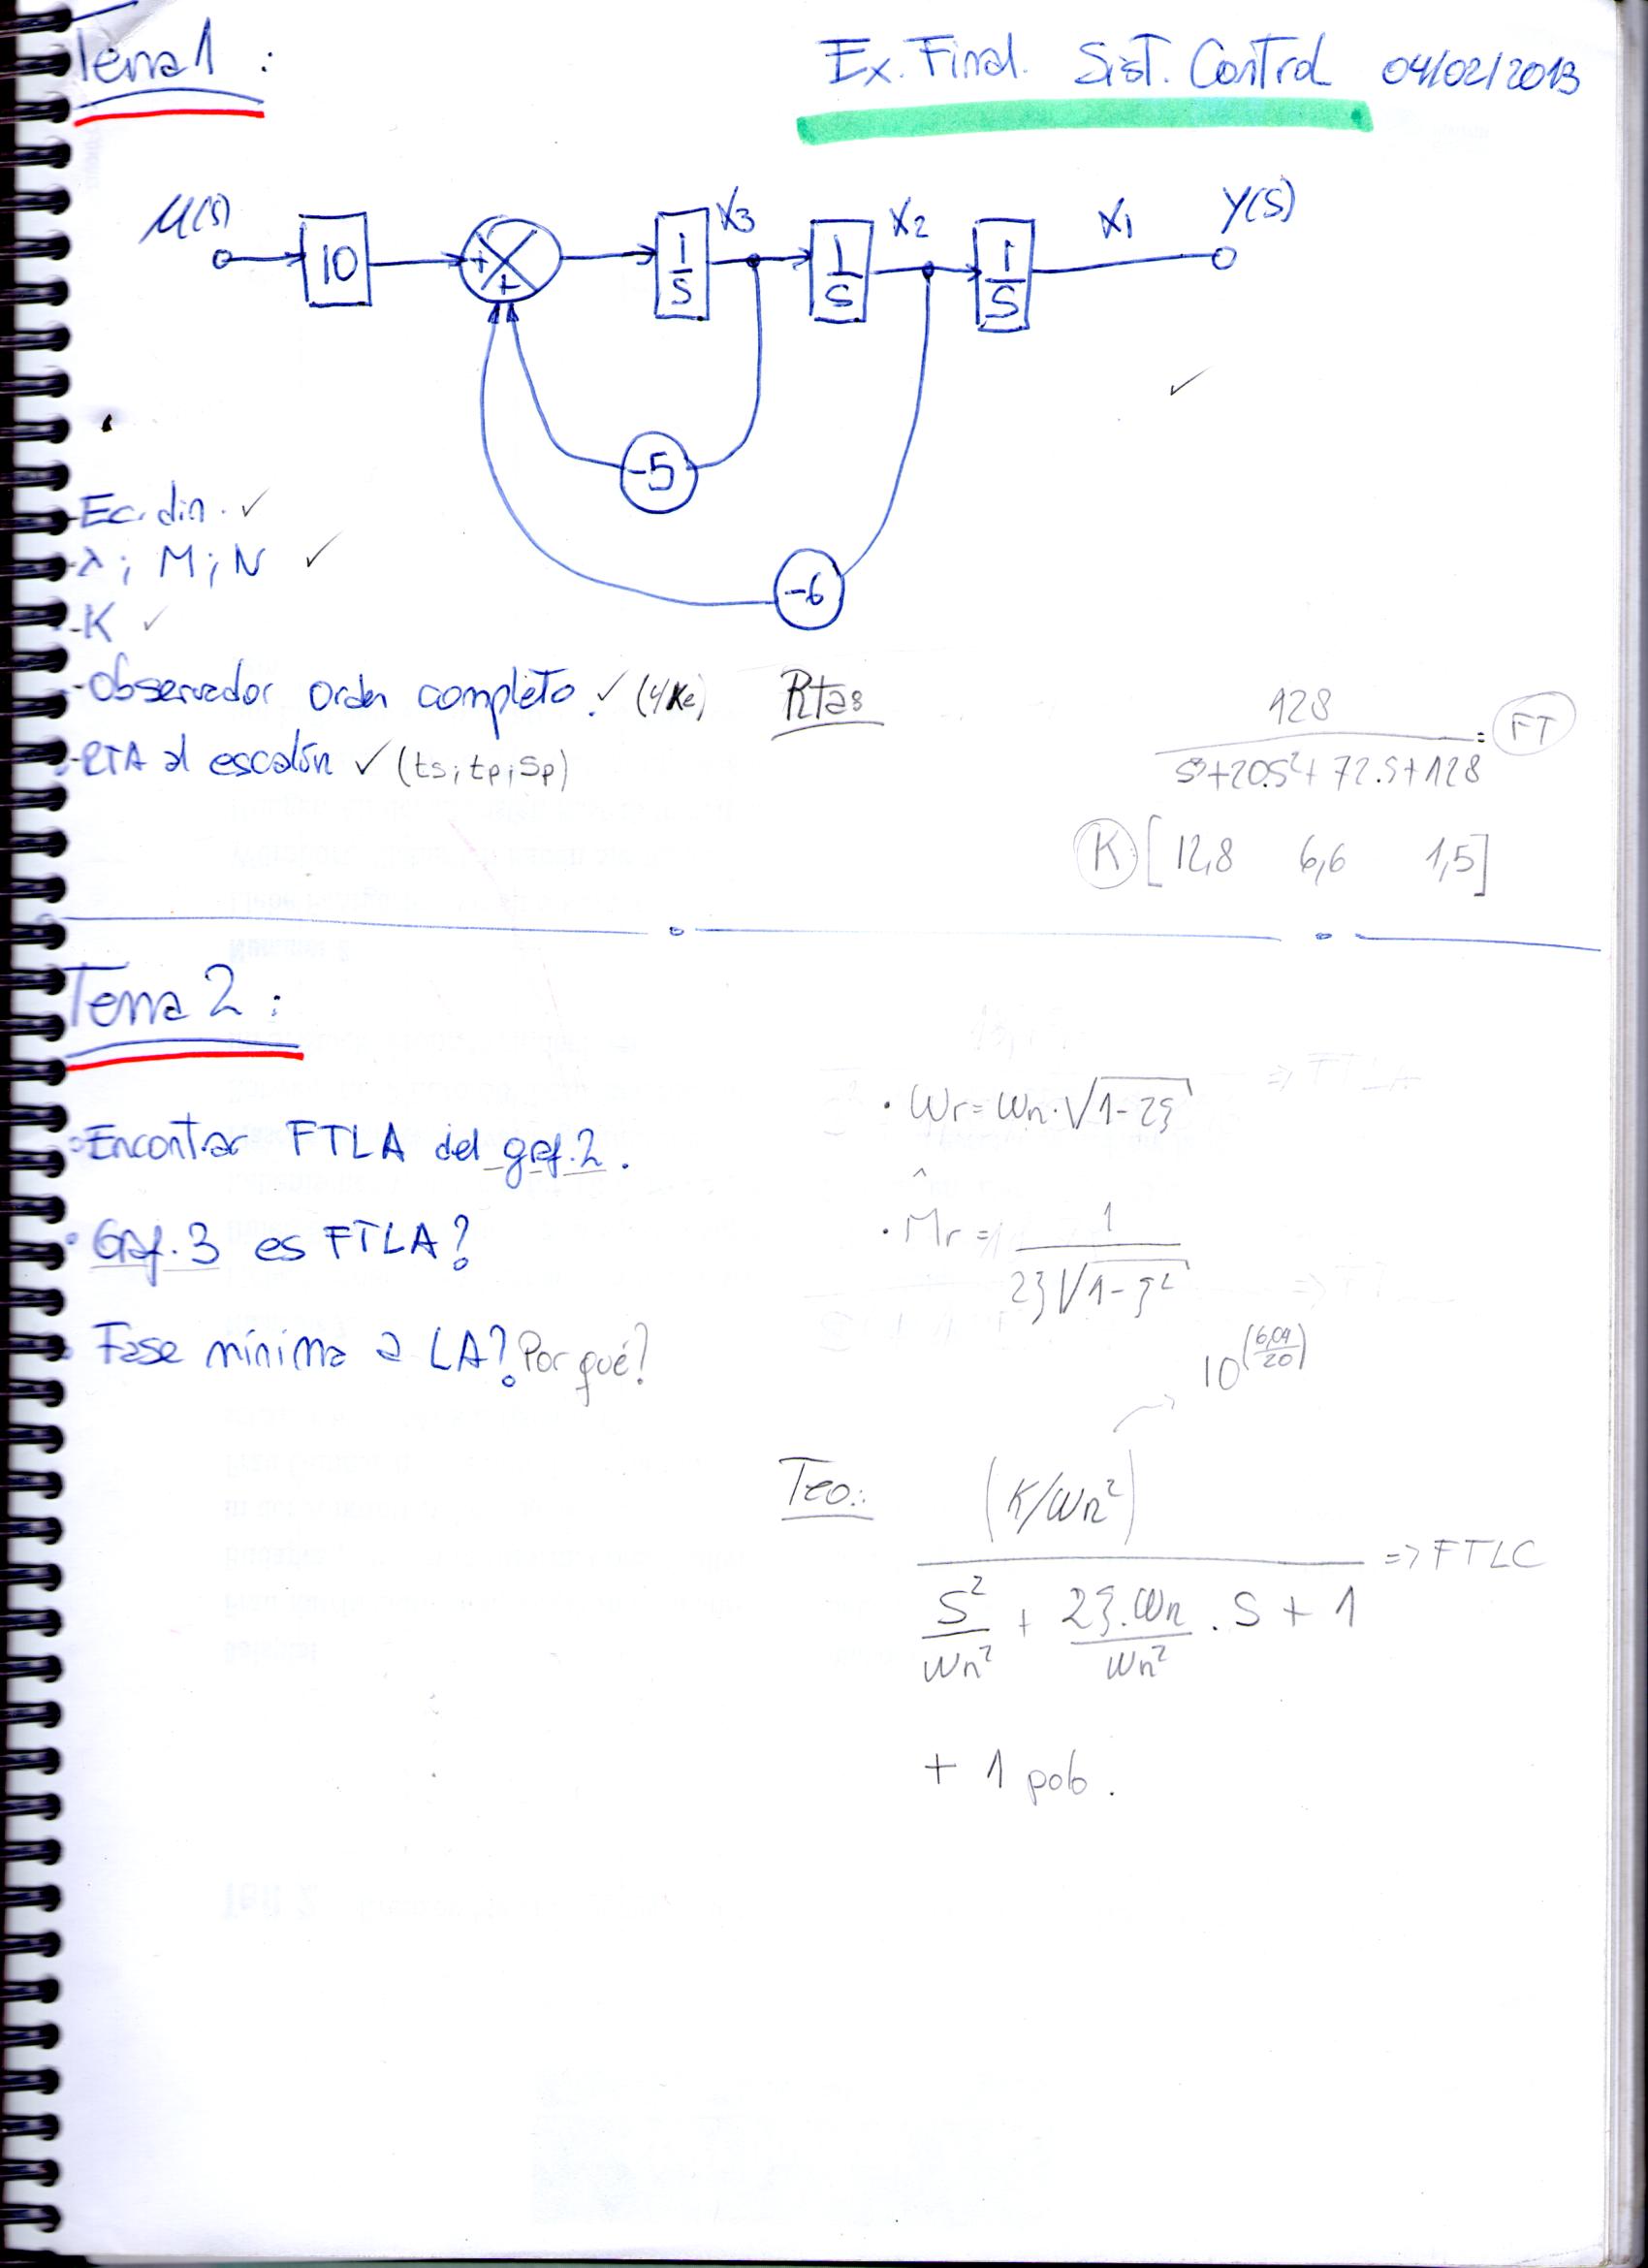 Tema 1 :
Ex. Final. Sist. Control 04/02/2013
U(s) 10 + + 1/S X3 1/S X2 1/S X1 Y(S)
-5
-6
- Ec. din. ✓
- λ ; M ; N ✓
- K ✓
- Observador orden completo. ✓ (y Ke)
- RTA al escalón ✓ (ts; tp; Sp)
Rtas
128 / S³+20.S²+72.S+128 = FT
K [12,8 6,6 1,5]
Tema 2 :
• Encontrar FTLA del graf. 2.
• Graf. 3 es FTLA?
• Fase mínima a LA? Por qué?
• Wr = Wn . √1-2ξ
• Mr = 1 / 2ξ√1-ξ²
10^(6,04/20)
Teo.: (K/Wn²) / S²/Wn² + 2ξ.Wn/Wn² . S + 1 => FTLC
+ 1 polo.